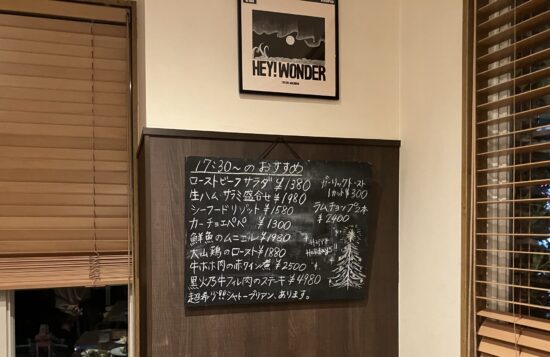 HEY! WONDER
17:30〜のおすすめ
ローストビーフサラダ ¥1380
生ハム サラミ盛合せ ¥1980
シーフードリゾット ¥1580
カーチョエペペ ¥1300
鮮魚のムニエル ¥1980
大山鶏のロースト ¥1880
牛ホホ肉の赤ワイン煮 ¥2500
黒火乃牛フィレ肉のステーキ ¥4980
超希少!!シャトーブリアン、あります。
ガーリックトースト
1カット¥300
ラムチョップ2本
¥2400